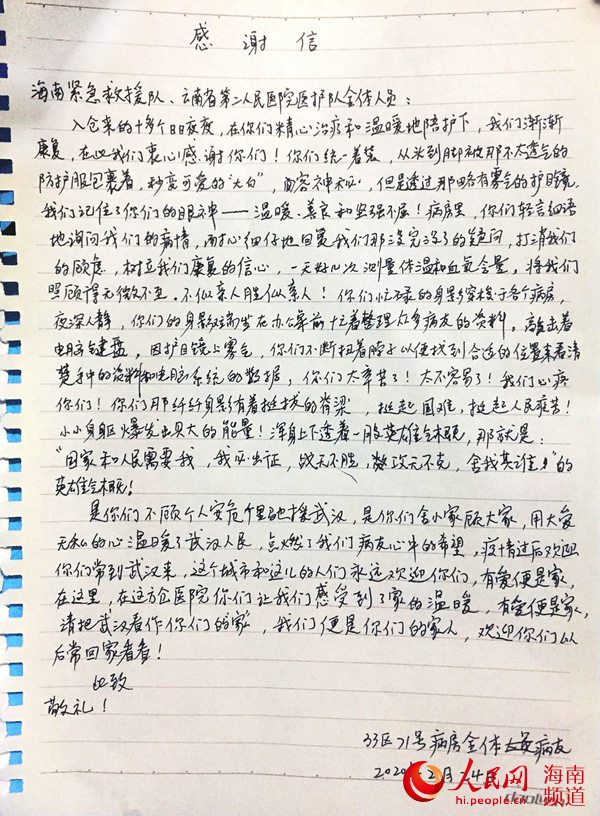 感谢信
海南紧急救援队、云南省第二人民医院医护队全体人员：
入仓来的十多个日日夜夜，在你们精心治疗和温暖地陪护下，我们渐渐
康复，在此我们衷心感谢你们！你们统一着装，从头到脚被那不太透气的
防护服包裹着，秒变可爱的“大白”，面容神秘，但是透过那略有雾气的护目镜
我们记住了你们的眼神——温暖、善良和坚强不屈！病房里，你们轻言细语
地询问我们的病情，耐心细仔地回复我们那没完没了的疑问，打消我们
的顾虑，树立我们康复的信心，一天好几次测量体温和血氧含量，将我们
照顾得无微不至。不似亲人胜似亲人！你们忙碌的身影穿梭于各个病房，
夜深人静，你们的身影端坐在办公桌前忙着整理众多病友的资料，敲击着
电脑键盘，因护目镜上雾气，你们不断扭着脖子以便找到合适的位置来看清
楚手中的资料和电脑系统的数据，你们太辛苦了！太不容易了！我们心疼
你们！你们那纤纤身影有着挺拔的脊梁，挺起国难，挺起人民疾苦！
小小身躯爆发出巨大的能量！浑身上下透着一股英雄气概，那就是：
“国家和人民需要我，我必出征，战无不胜，攻无不克，舍我其谁”的
英雄气概！
是你们不顾个人安危千里驰援武汉，是你们舍小家顾大家，用大爱
无私的心温暖了武汉人民，点燃了我们病友心中的希望，疫情过后欢迎
你们常到武汉来，这个城市和这儿的人们永远欢迎你们，有爱便是家，
在这里，在这方仓医院你们让我们感受到了家的温暖，有爱便是家，
请把武汉看作你们的家，我们便是你们的家人，欢迎你们以
后常回家看看！
此致
敬礼！
33区71号病房全体病友
2020年2月24日
人民网 海南频道
hi.people.cn